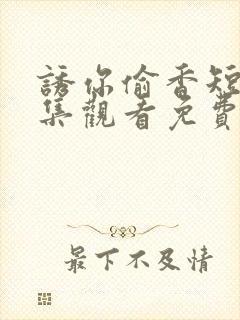 誘你偷香短
集觀看免費
最下不及情